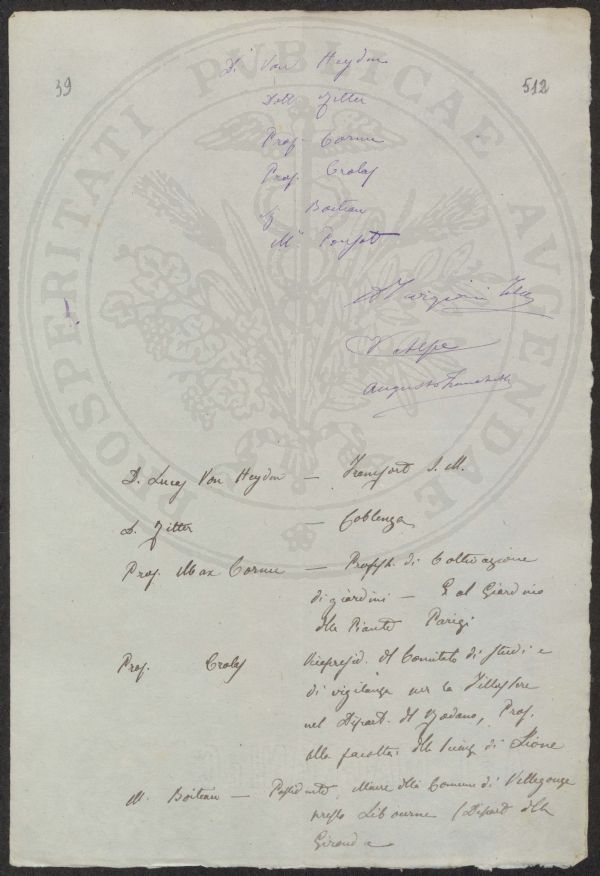 39
512
PROSPERITATI PUBLICAE AUGENDAE
D. Von Heyden
Dott. Zitter
Prof. Cornu
Prof. Crolas
Boiteau
Mr Ponsot
A Targioni
V Alpe
Augusto
D. Lucas Von Heyden — S. M.
D. Zitter — Coblenza
Prof. Max Cornu — di Coltivazione
di giardini — E al Giardino
delle Piante Parigi
Prof. Crolas Vicepresid. del Comitato di Studi e
di vigilanza per la Fillossera
nel Dipart. del Rodano, Prof.
alla facoltà delle Scienze di Lione
M. Boiteau — Maire della Comune di Villegouge
presso Libourne (Dipart. della
Gironda